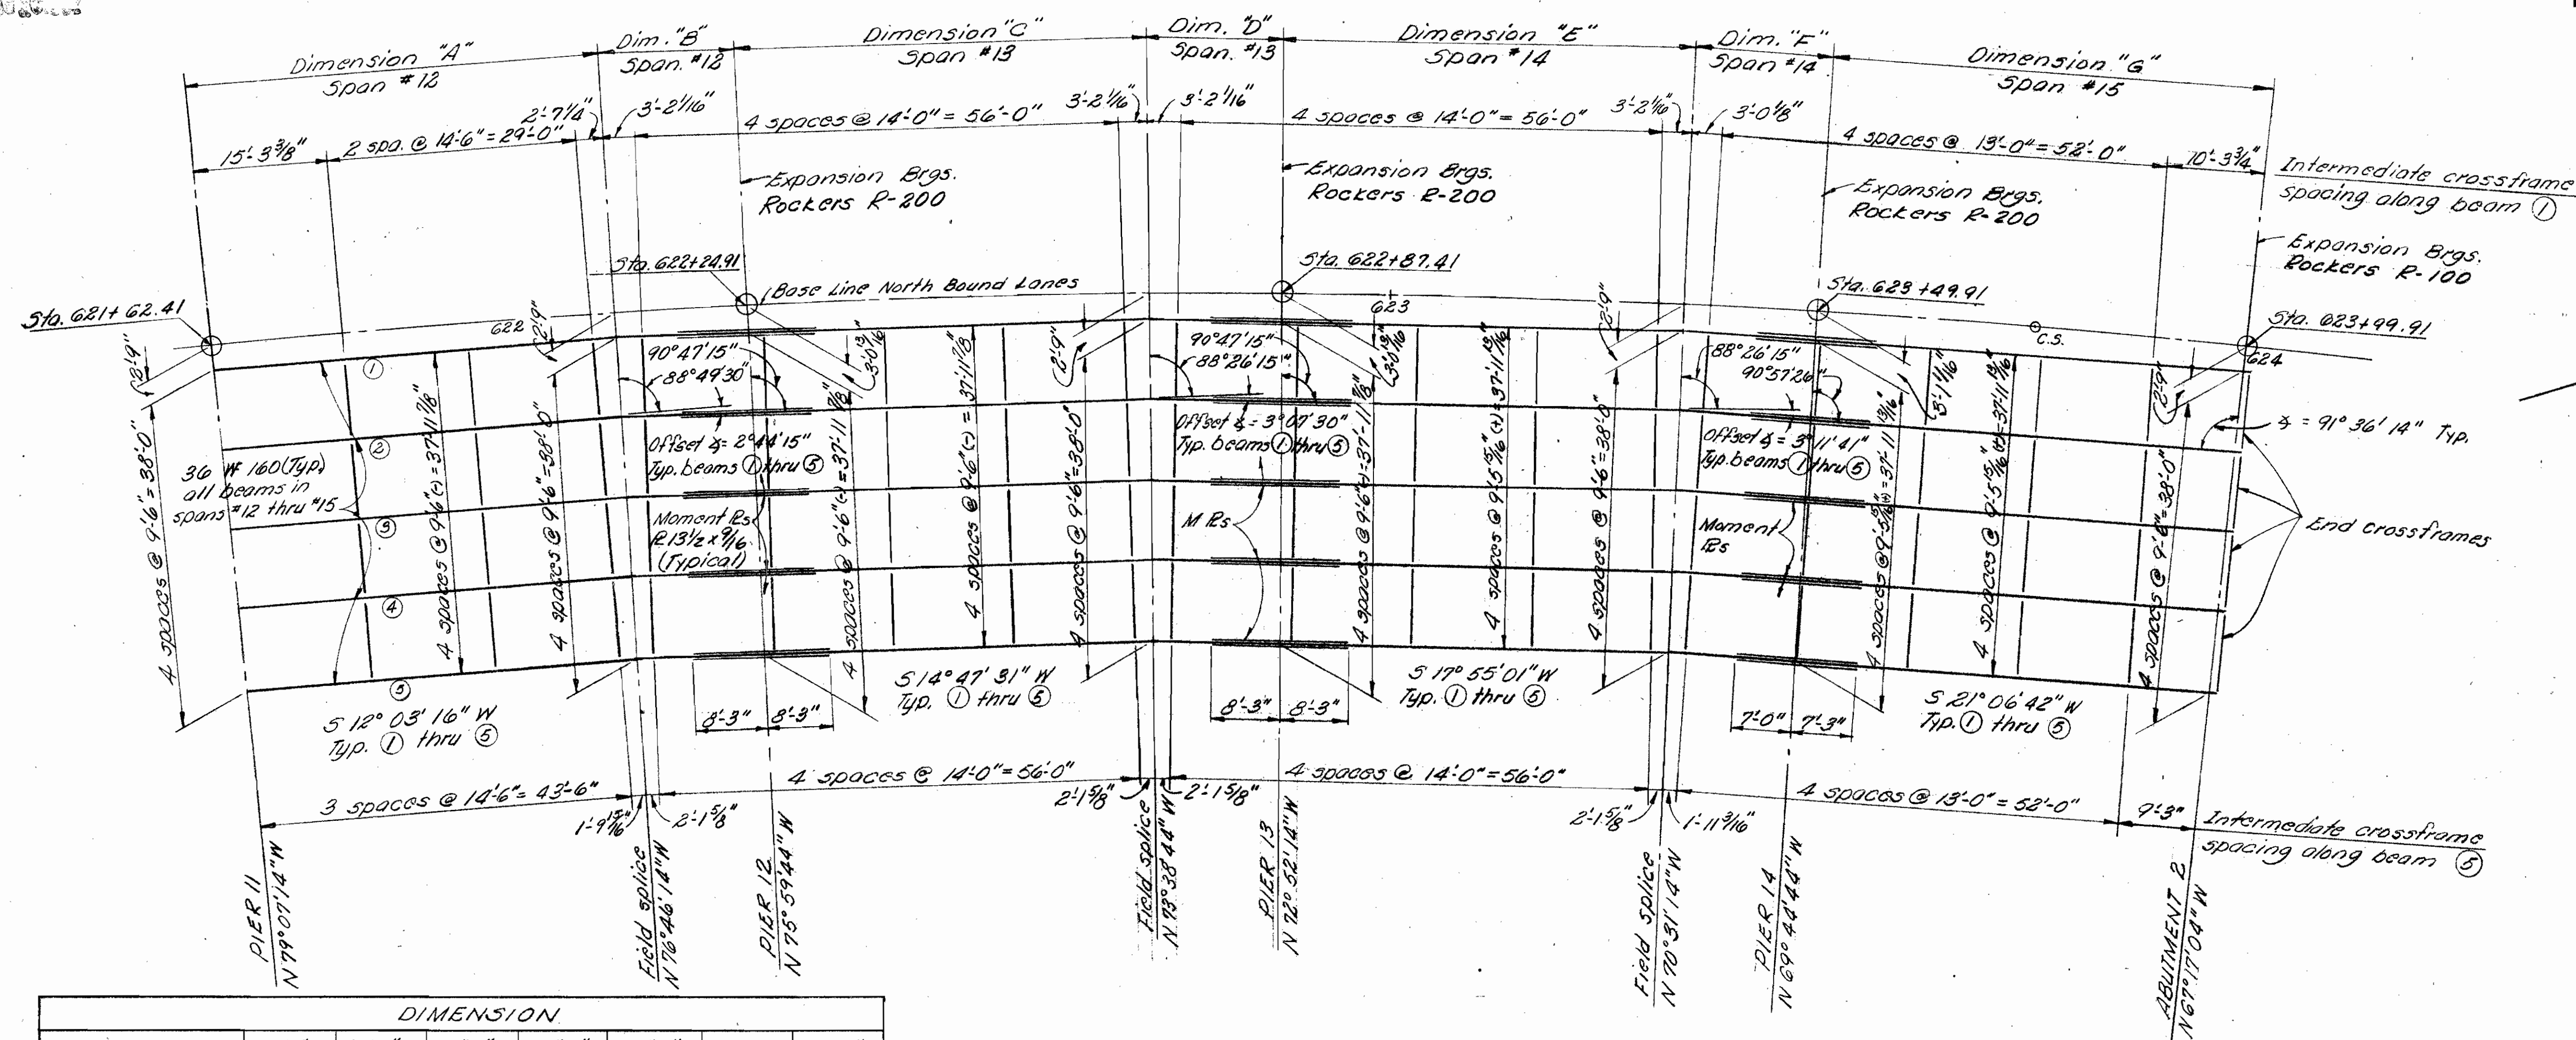 Dimension "A"
Span #12
Dim. "B"
Span. #12
Dimension "C"
Span #13
Dim. "D"
Span. #13
Dimension "E"
Span #14
Dim. "F"
Span #14
Dimension "G"
Span #15
15'-3 3/8"
2 spa. @ 14'-6" = 29'-0"
2'-7 1/4"
3'-2 1/16"
4 spaces @ 14'-0" = 56'-0"
3'-2 1/16"
3'-2 1/16"
4 spaces @ 14'-0" = 56'-0"
3'-2 1/16"
3'-0 1/8"
4 spaces @ 13'-0" = 52'-0"
10'-3 3/4"
Intermediate crossframe
spacing along beam ①
Expansion Brgs.
Rockers R-200
Expansion Brgs.
Rockers R-200
Expansion Brgs.
Rockers R-200
Expansion Brgs.
Rockers R-100
Sta. 621+62.41
Sta. 622+24.91
Base Line North Bound Lanes
Sta. 622+87.41
Sta. 623+49.91
Sta. 623+99.91
622
623
C.S.
624
2'-9"
2'-9"
3'-0 13/16"
2'-9"
3'-0 13/16"
2'-9"
3'-1 1/16"
2'-9"
90°47'15"
88°49'30"
90°47'15"
88°26'15"
88°26'15"
90°57'26"
∡ = 91°36'14" Typ.
①
②
③
④
⑤
36 WF 160 (Typ)
all beams in
spans #12 thru #15
Offset ∡ = 2°44'15"
Typ. beams ① thru ⑤
Offset ∡ = 3°07'30"
Typ. beams ① thru ⑤
Offset ∡ = 3°11'41"
Typ. beams ① thru ⑤
Moment PLs
PL 13 1/2 x 9/16
(Typical)
M PLs
Moment
PLs
End crossframes
4 spaces @ 9'-6" = 38'-0"
4 spaces @ 9'-6"(-) = 37'-11 7/8"
4 spaces @ 9'-6" = 38'-0"
4 spaces @ 9'-6"(-) = 37'-11 7/8"
4 spaces @ 9'-6"(-) = 37'-11 7/8"
4 spaces @ 9'-6" = 38'-0"
4 spaces @ 9'-6"(-) = 37'-11 7/8"
4 spaces @ 9'-5 15/16"(+) = 37'-11 13/16"
4 spaces @ 9'-6" = 38'-0"
4 spaces @ 9'-5 15/16"(+) = 37'-11 13/16"
4 spaces @ 9'-5 15/16"(+) = 37'-11 13/16"
4 spaces @ 9'-6" = 38'-0"
S 12° 03' 16" W
Typ. ① thru ⑤
S 14° 47' 31" W
Typ. ① thru ⑤
S 17° 55' 01" W
Typ. ① thru ⑤
S 21° 06' 42" W
Typ. ① thru ⑤
8'-3"
8'-3"
8'-3"
8'-3"
7'-0"
7'-3"
3 spaces @ 14'-6" = 43'-6"
1'-9 15/16"
2'-1 5/8"
4 spaces @ 14'-0" = 56'-0"
2'-1 5/8"
2'-1 5/8"
4 spaces @ 14'-0" = 56'-0"
2'-1 5/8"
1'-11 3/16"
4 spaces @ 13'-0" = 52'-0"
9'-3"
Intermediate crossframe
spacing along beam ⑤
PIER 11
N 79° 07' 14" W
Field splice
N 76° 46' 14" W
PIER 12
N 75° 59' 44" W
Field splice
N 73° 38' 44" W
PIER 13
N 72° 52' 14" W
Field splice
N 70° 31' 14" W
PIER 14
N 69° 44' 44" W
ABUTMENT 2
N 67° 17' 04" W
DIMENSION